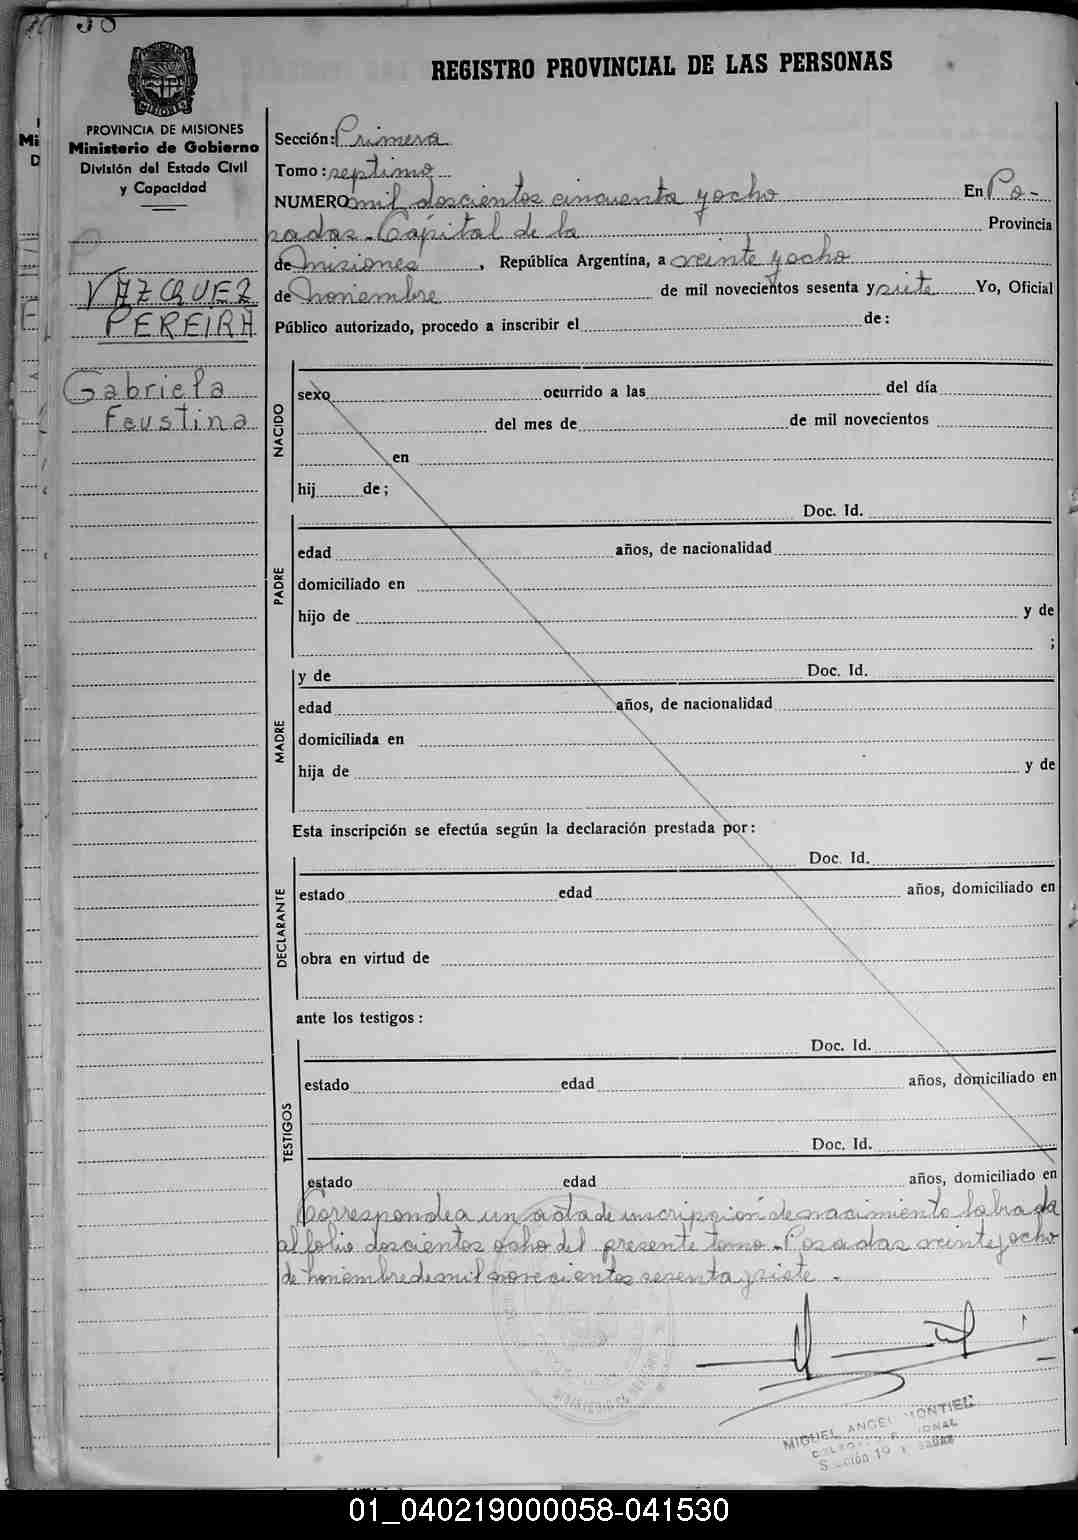 58
REGISTRO PROVINCIAL DE LAS PERSONAS
PROVINCIA DE MISIONES
Ministerio de Gobierno
División del Estado Civil
y Capacidad
VAZQUEZ
PEREIRA
Gabriela
Faustina
Sección: Primera
Tomo: septimo
NUMERO mil doscientos cincuenta y ocho En Po-
sadas. Cápital de la Provincia
de Misiones, República Argentina, a veinte y ocho
de noviembre de mil novecientos sesenta y siete Yo, Oficial
Público autorizado, procedo a inscribir el de:
NACIDO
sexo ocurrido a las del día
del mes de de mil novecientos
en
hij de;
PADRE
Doc. Id.
edad años, de nacionalidad
domiciliado en
hijo de y de
;
MADRE
y de Doc. Id.
edad años, de nacionalidad
domiciliada en
hija de y de
Esta inscripción se efectúa según la declaración prestada por:
DECLARANTE
Doc. Id.
estado edad años, domiciliado en
obra en virtud de
ante los testigos:
TESTIGOS
Doc. Id.
estado edad años, domiciliado en
Doc. Id.
estado edad años, domiciliado en
Corresponde a un acta de inscripción de nacimiento labrada
al folio doscientos ocho del presente tomo. Posadas veinte y ocho
de noviembre de mil novecientos sesenta y siete.
MIGUEL ANGEL MONTIEL
01_040219000058-041530